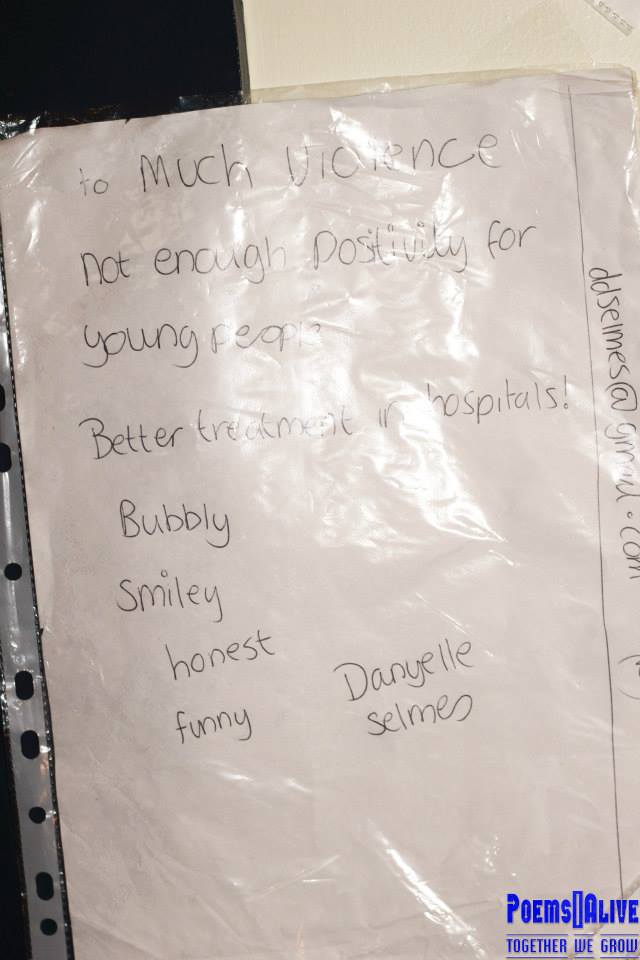 to Much Violence
not enough positivity for
young people
Better treatment in hospitals!
Bubbly
Smiley
honest
funny
Danyelle
selmes
ddselmes@gmail.com
POEMS ALIVE
TOGETHER WE GROW